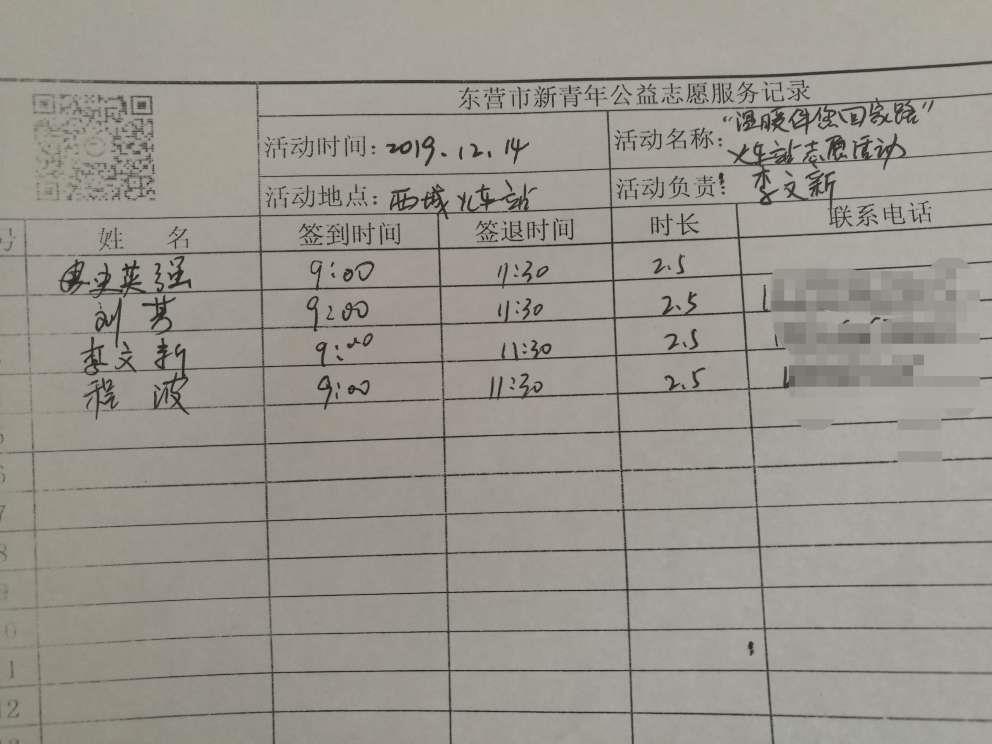 东营市新青年公益志愿服务记录
活动时间：2019.12.14
活动名称：“温暖伴您回家路”
火车站志愿活动
活动地点：西城火车站
活动负责：李文新
号 姓 名 签到时间 签退时间 时长 联系电话
史英强 9:00 11:30 2.5
刘芳 9:00 11:30 2.5
李文新 9:00 11:30 2.5
程波 9:00 11:30 2.5
6
7
8
9
0
1
12